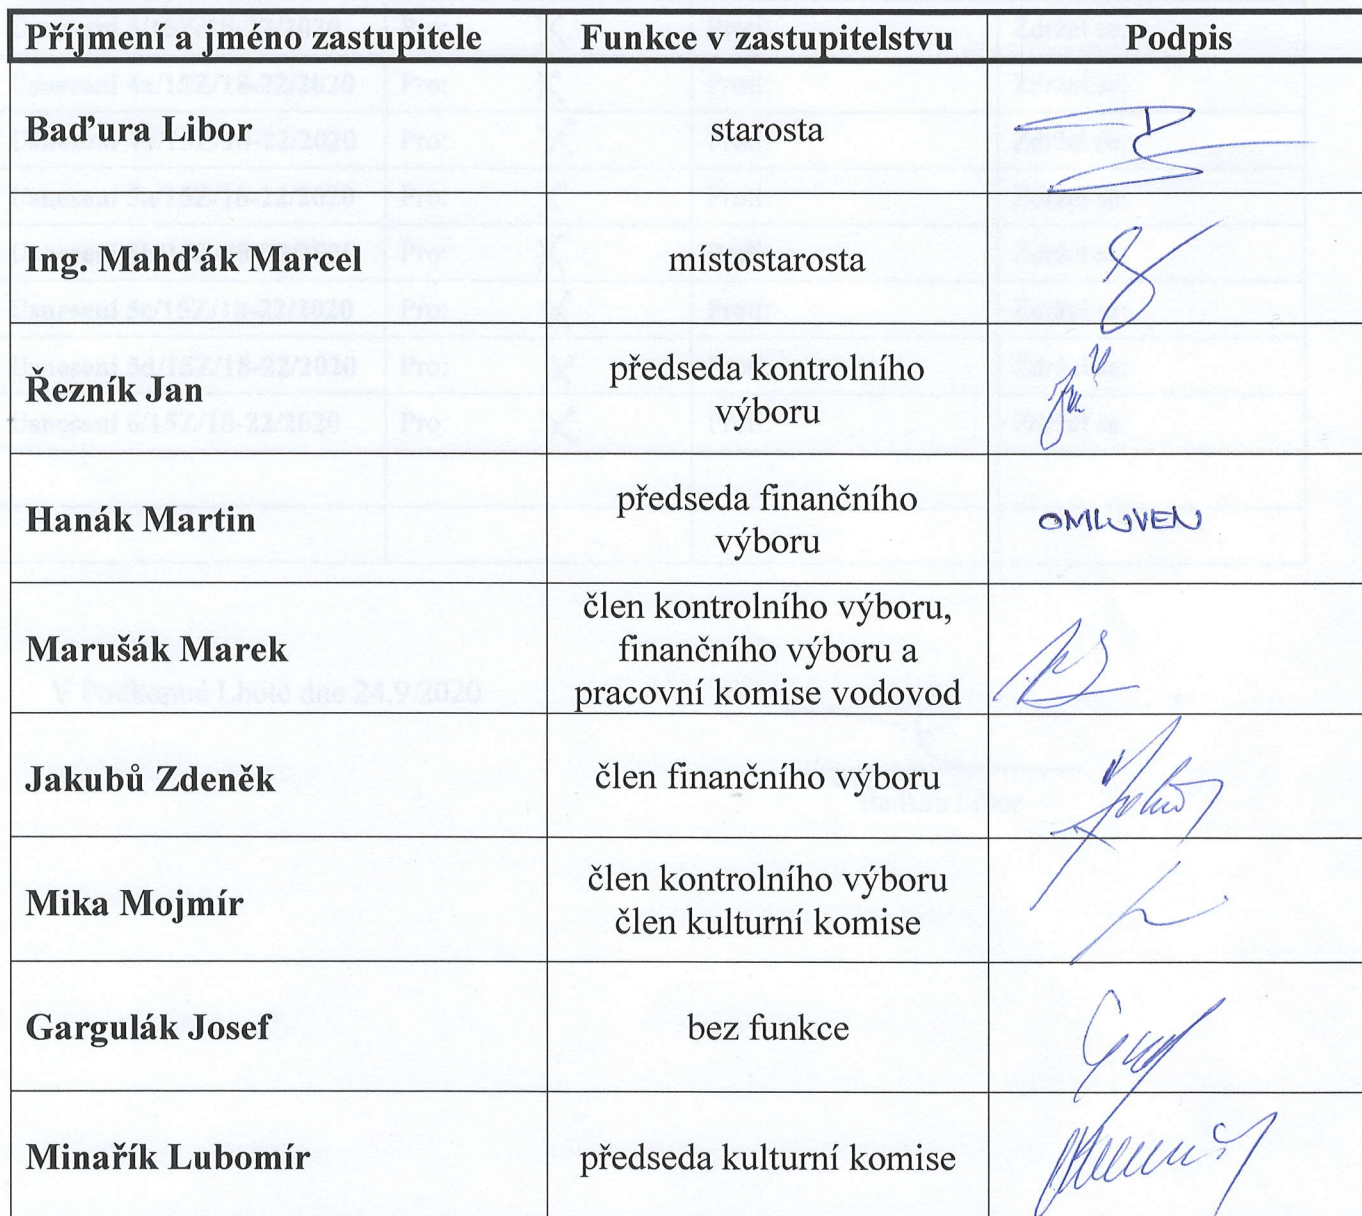 Příjmení a jméno zastupitele Funkce v zastupitelstvu Podpis
Baďura Libor starosta
Ing. Mahďák Marcel místostarosta
Řezník Jan předseda kontrolního
výboru
Hanák Martin předseda finančního
výboru OMLUVEN
Marušák Marek člen kontrolního výboru,
finančního výboru a
pracovní komise vodovod
Jakubů Zdeněk člen finančního výboru
Mika Mojmír člen kontrolního výboru
člen kulturní komise
Gargulák Josef bez funkce
Minařík Lubomír předseda kulturní komise